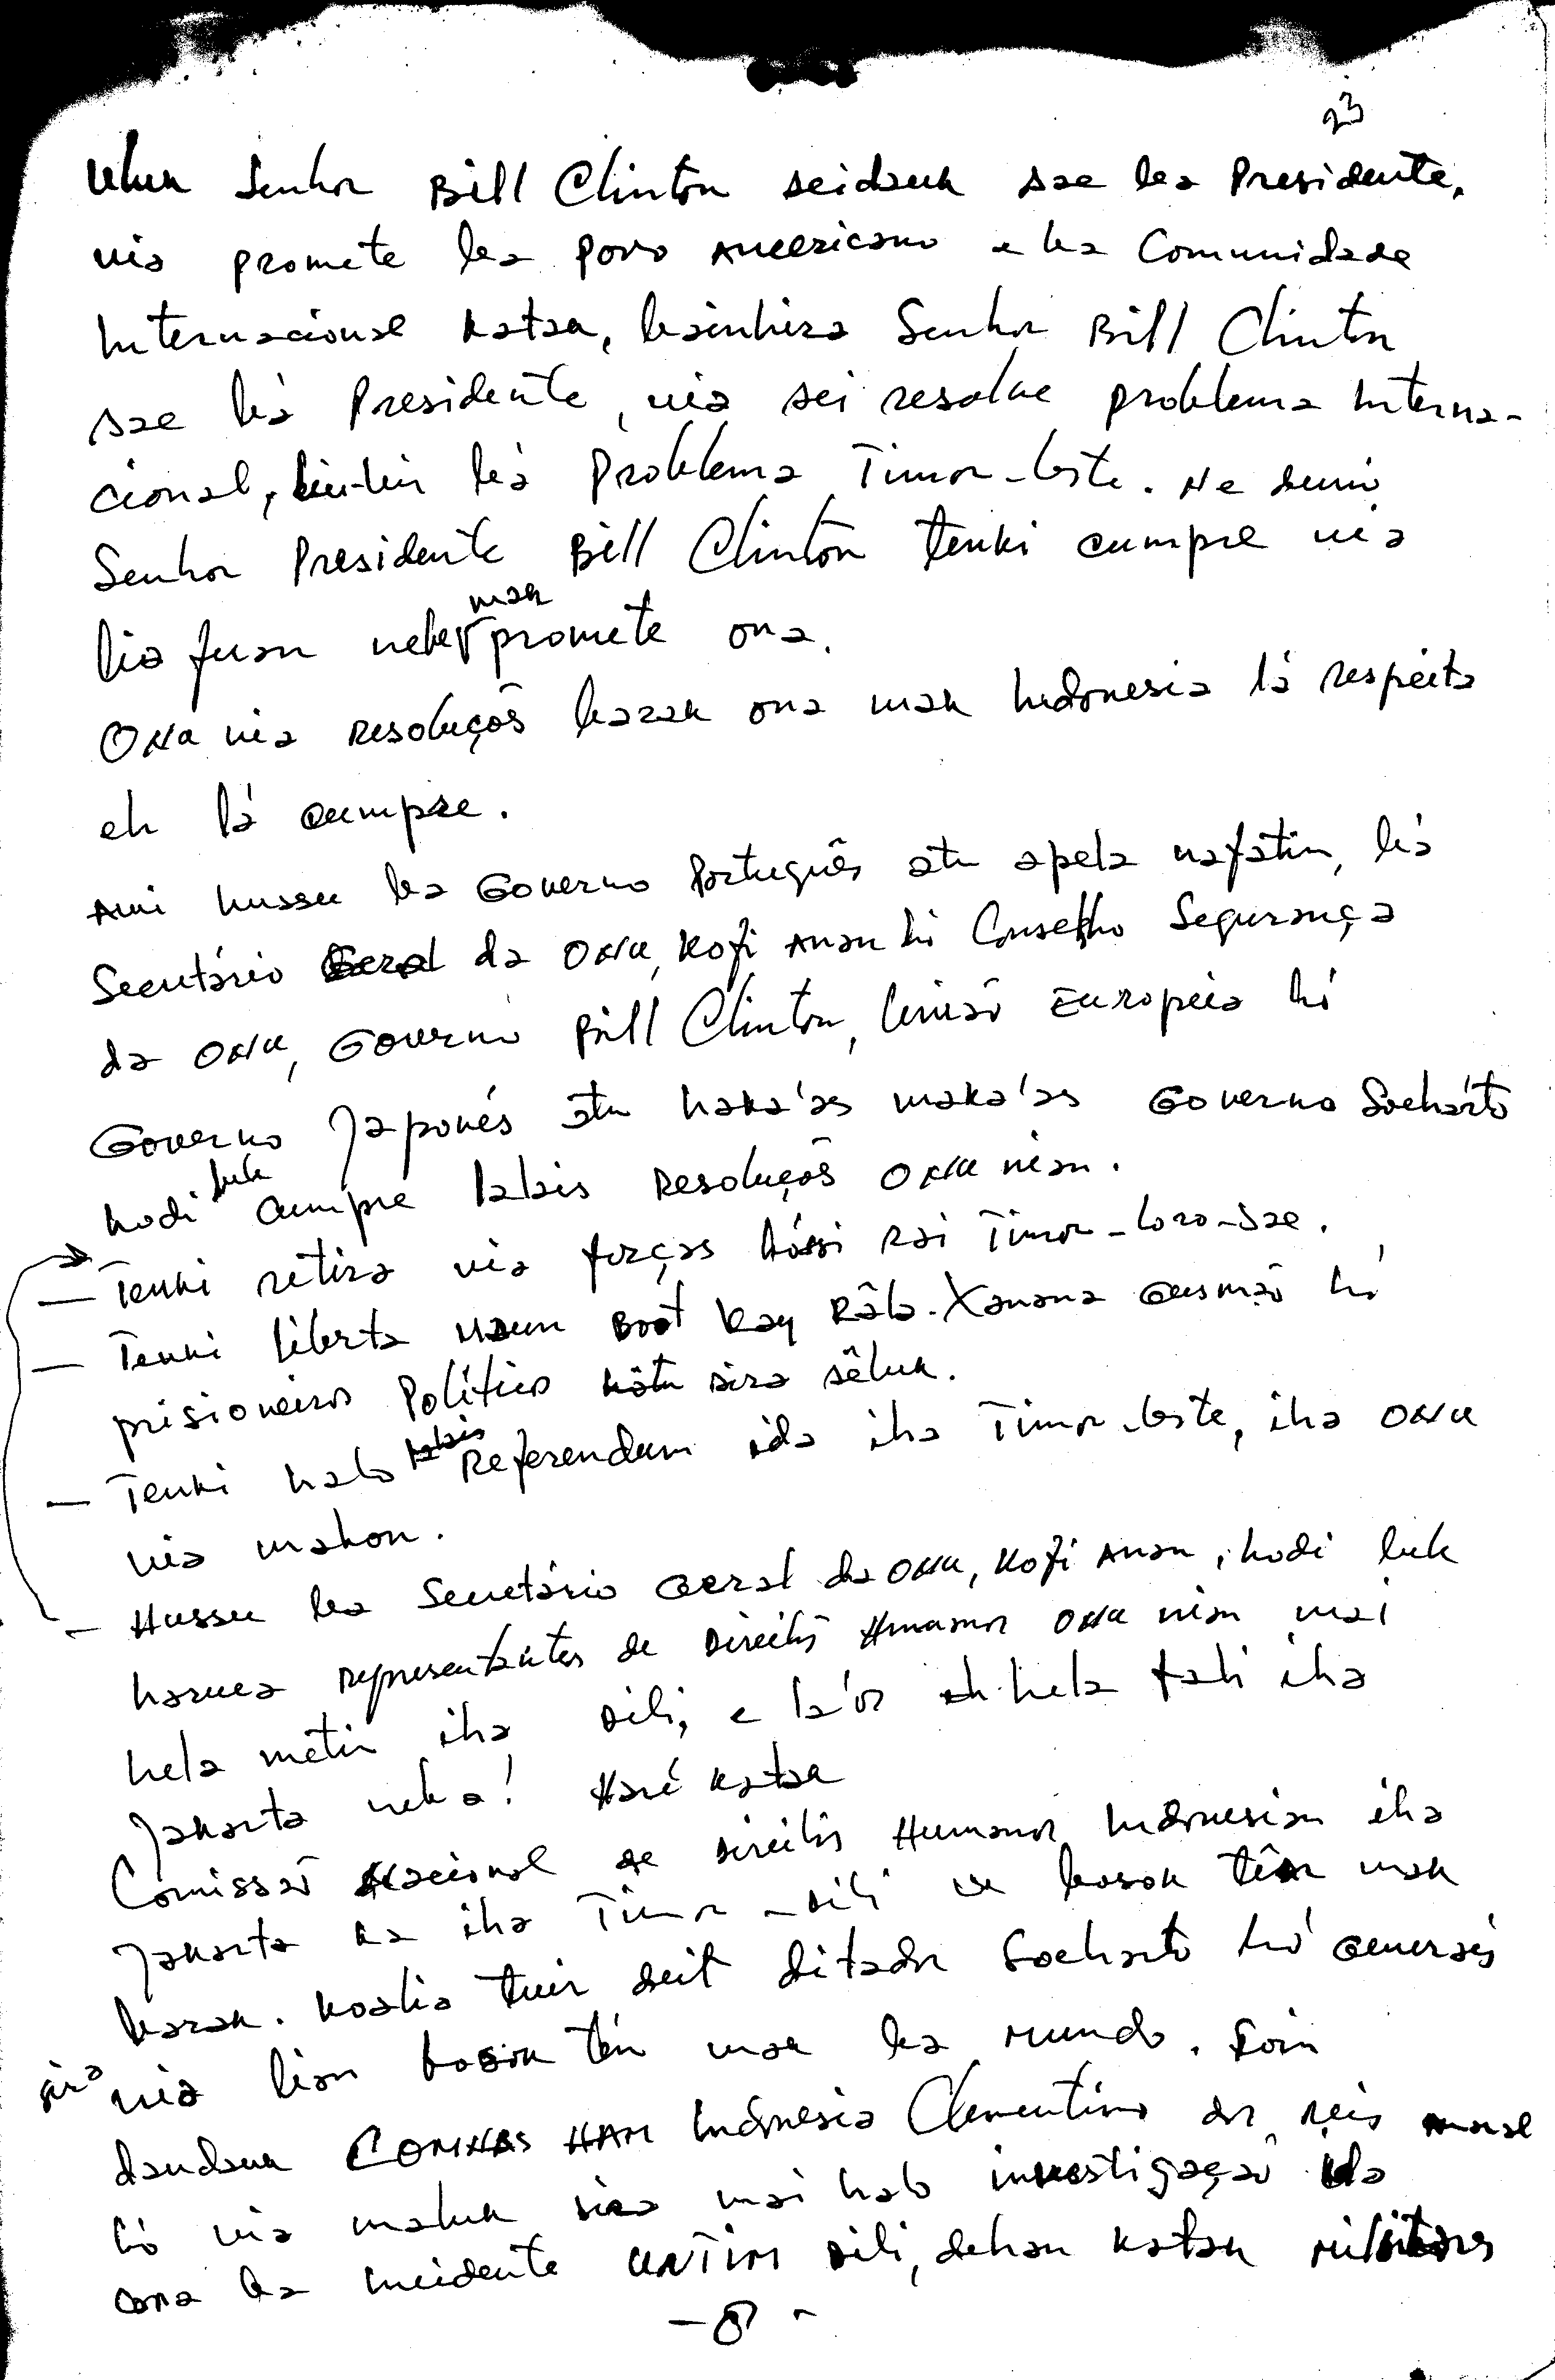 23
Uluk Senhor Bill Clinton seidauk sae ba Presidente,
nia promete ba povo Americano e ba Comunidade
Internacional katak, bainhira Senhor Bill Clinton
sae bá Presidente, nia sei resolve problema Interna-
cional, liu-liu bá Problema Timor-Leste. Ne duni
Senhor Presidente Bill Clinton tenki cumpre nia
lia fuan nebe mak promete ona.
ONU nia resoluçõs barak ona mak Indonesia lá respeita
eh lá cumpre.
Ami hussu ba Governo Português atu apela nafatin, bá
Secretário Geral da ONU, Kofi Anan hó Conselho Segurança
da ONU, Governo Bill Clinton, União Europeia hó
Governo Japonés atu haka'as maka'as Governo Soehárto
hodi bele cumpre lalais Resoluçõs ONU nian.
— Tenki retira nia forças hóssi Rai Timor-Loro-Sae.
— Tenki liberta Maun Boót Kay Râla-Xanana Gusmão hó
prisioneiros Político hótu sira sêluk.
— Tenki halo lalais Referendum ida iha Timor-Leste, iha ONU
nia mahon.
— Hussu ba Secretário Geral da ONU, Kofi Anan, hodi bele
harua representantes de Direitos Humanos ONU nian mai
hela metin iha Dili, e la'ós eh hela fali iha
Jakarta neba! Haré katak
Comissão Nacional de Direitos Humanos Indonesian iha
Jakarta ka iha Timor-Dili ne bosok tên mak
barak. Koalia tuir deit ditador Soeharto hó Generais
sira nia lian bosok tén mak ba Mundo. Foin
daudauk COMNAS HAM Indonesia Clementino dos Reis Amaral
hó nia maluk sira mai halo investigação ida
cona ba Incidente UNTIM Dili, dehan katak militares
- 8 -